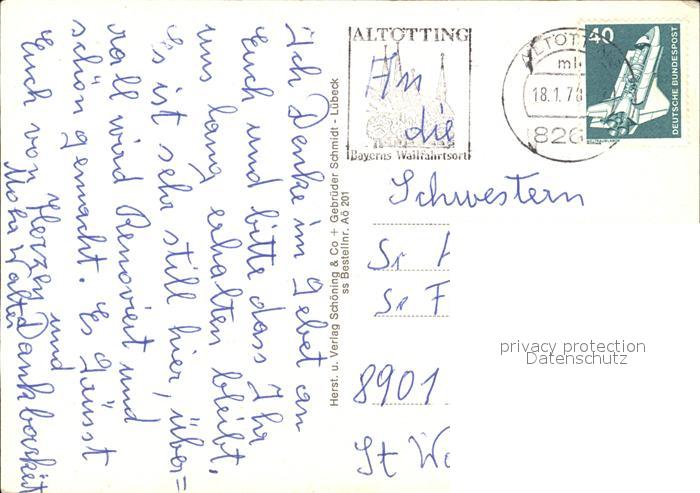 Ich Denke im Gebet an
Euch und bitte dass Ihr
uns lang erhalten bleibt.
Es ist sehr still hier, über=
rall wird Renoviert und
schön gemacht. Es Grüsst
Euch von Herzen und
Dankbarkeit
Walter
Herst. u. Verlag Schöning & Co + Gebrüder Schmidt - Lübeck
ss Bestellnr. Aö 201
ALTÖTTING
Bayerns Wallfahrtsort
ALTÖTTING
18.1.76
826
40
DEUTSCHE BUNDESPOST
An
die
Schwestern
Sr
Sr F
8901
St
privacy protection
Datenschutz